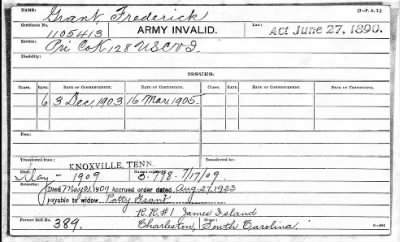 NAME: Grant Frederick (3-P.A.I.)
Certificate No. 1105413 ARMY INVALID. Law: Act June 27, 1890.
Service: Pri Co K, 128 USCVI
Disability:
ISSUES.
CLASS. RATE. DATE OF COMMENCEMENT. CLASS. RATE. DATE OF COMMENCEMENT. CLASS. RATE. DATE OF COMMENCEMENT.
6 3 Dec, 1903 16 Mar, 1905
Transferred from:
Transferred to: KNOXVILLE, TENN.
1909 3-778-7/17/09.
Remarks: Died May 21, 1909 Accrued order dated Aug. 27, 1923
payable to widow Patty Grant
R.R.#1 James Island
Former Roll No. 389. Charleston, South Carolina.